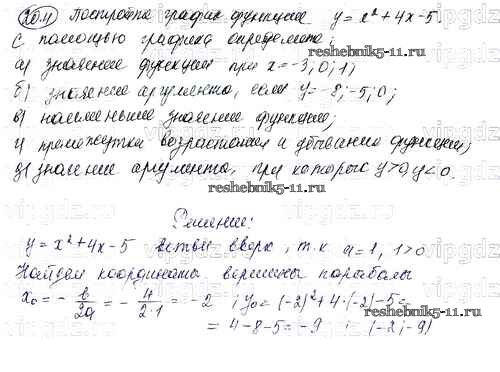 20.11 Постройте график функции y = x² + 4x - 5.
С помощью графика определите:
а) значение функции при x = -3; 0; 1;
б) значение аргумента, если y = -8; -5; 0;
в) наименьшее значение функции;
г) промежутки возрастания и убывания функции;
д) значение аргумента, при которых y > 0, y < 0.
reshebnik5-11.ru
reshebnik5-11.ru
Решение:
y = x² + 4x - 5 ветви вверх, т.к a = 1, 1 > 0
Найдем координаты вершины параболы
x₀ = - b/2a = - 4/2·1 = -2 ; y₀ = (-2)² + 4·(-2) - 5 =
= 4 - 8 - 5 = -9 ; (-2; -9)
reshebnik5-11.ru